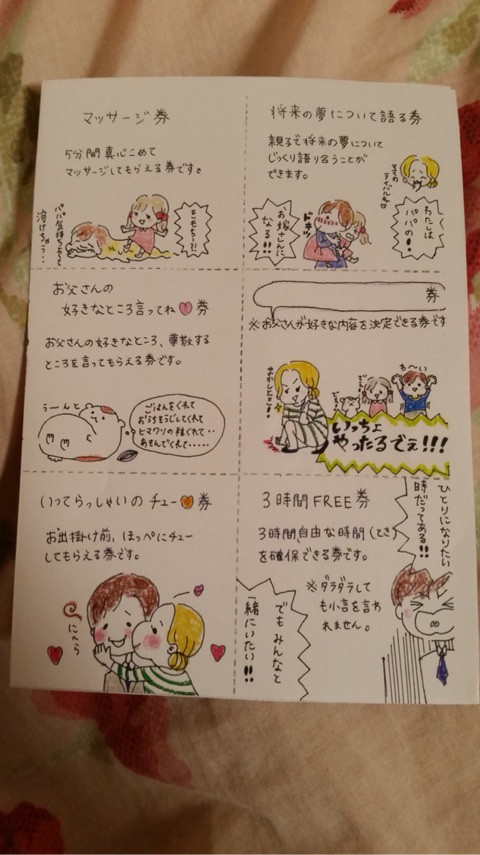 マッサージ券
5分間真心こめて
マッサージしてもらえる券です。
パパ気持ちよくて
溶けちゃう…
きもちー?!
将来の夢について語る券
親子で将来の夢について
じっくり語り合うことが
できます。
わたしは
パパの!
お嫁さんに
なる!!
ドキッ
お父さんの
好きなところ言ってね券
お父さんの好きなところ、尊敬する
ところを言ってもらえる券です。
うーんと
ごはんをくれて
おうちそうじしてくれて
ヒマワリの種くれて‥
あそんでくれて‥‥‥
券
※お父さんが好きな内容を決定できる券です
まかしとき!
お〜い
いっちょ
やったるでぇ!!!
いってらっしゃいのチュー券
お出掛け前、ほっぺにチュー
してもらえる券です。
にへら
3時間FREE券
3時間自由な時間(とき)
を確保できる券です。
※ダラダラして
も小言を言わ
れません。
ひとりになりたい
時だってある!!
でもみんなと
一緒にいたい!!